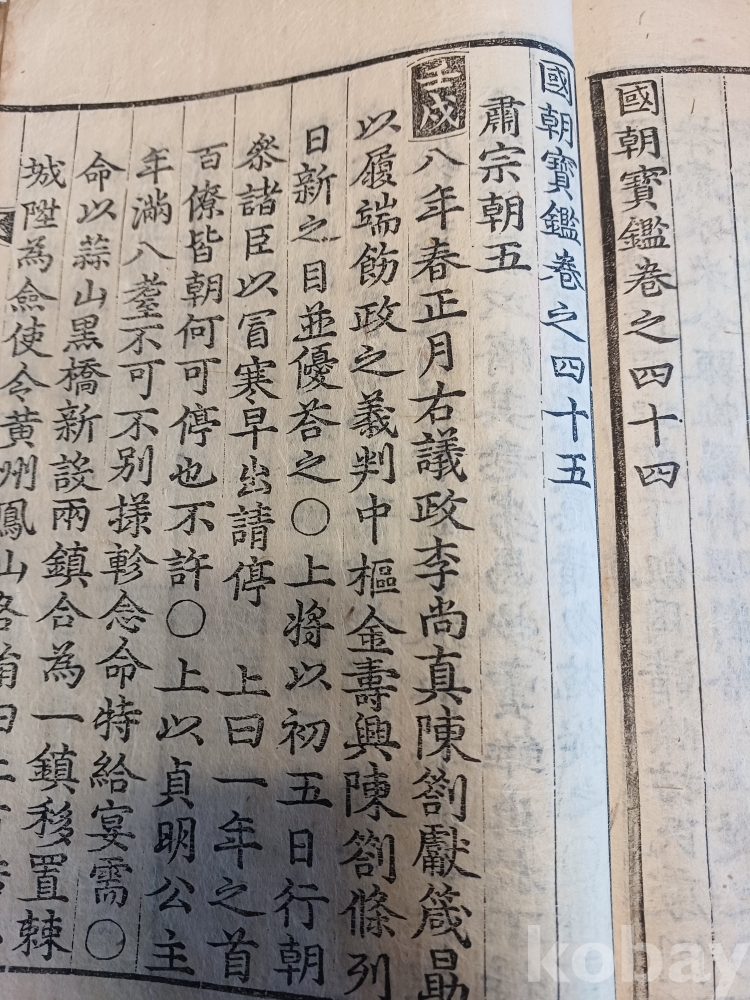 國朝寶鑑卷之四十四
國朝寶鑑卷之四十五
肅宗朝五
壬戌八年春正月右議政李尚真陳劄獻箴勗
以履端飭政之義判中樞金壽興陳劄條列
日新之目並優荅之○上將以初五日行朝
叅諸臣以冒寒早出請停 上曰一年之首
百僚皆朝何可停也不許○上以貞明公主
年滿八耋不可不別㨾軫念命特給宴需○
命以蒜山黒橋新設兩鎮合為一鎮移置棘
城陞為僉使令黃州鳳山
kobay